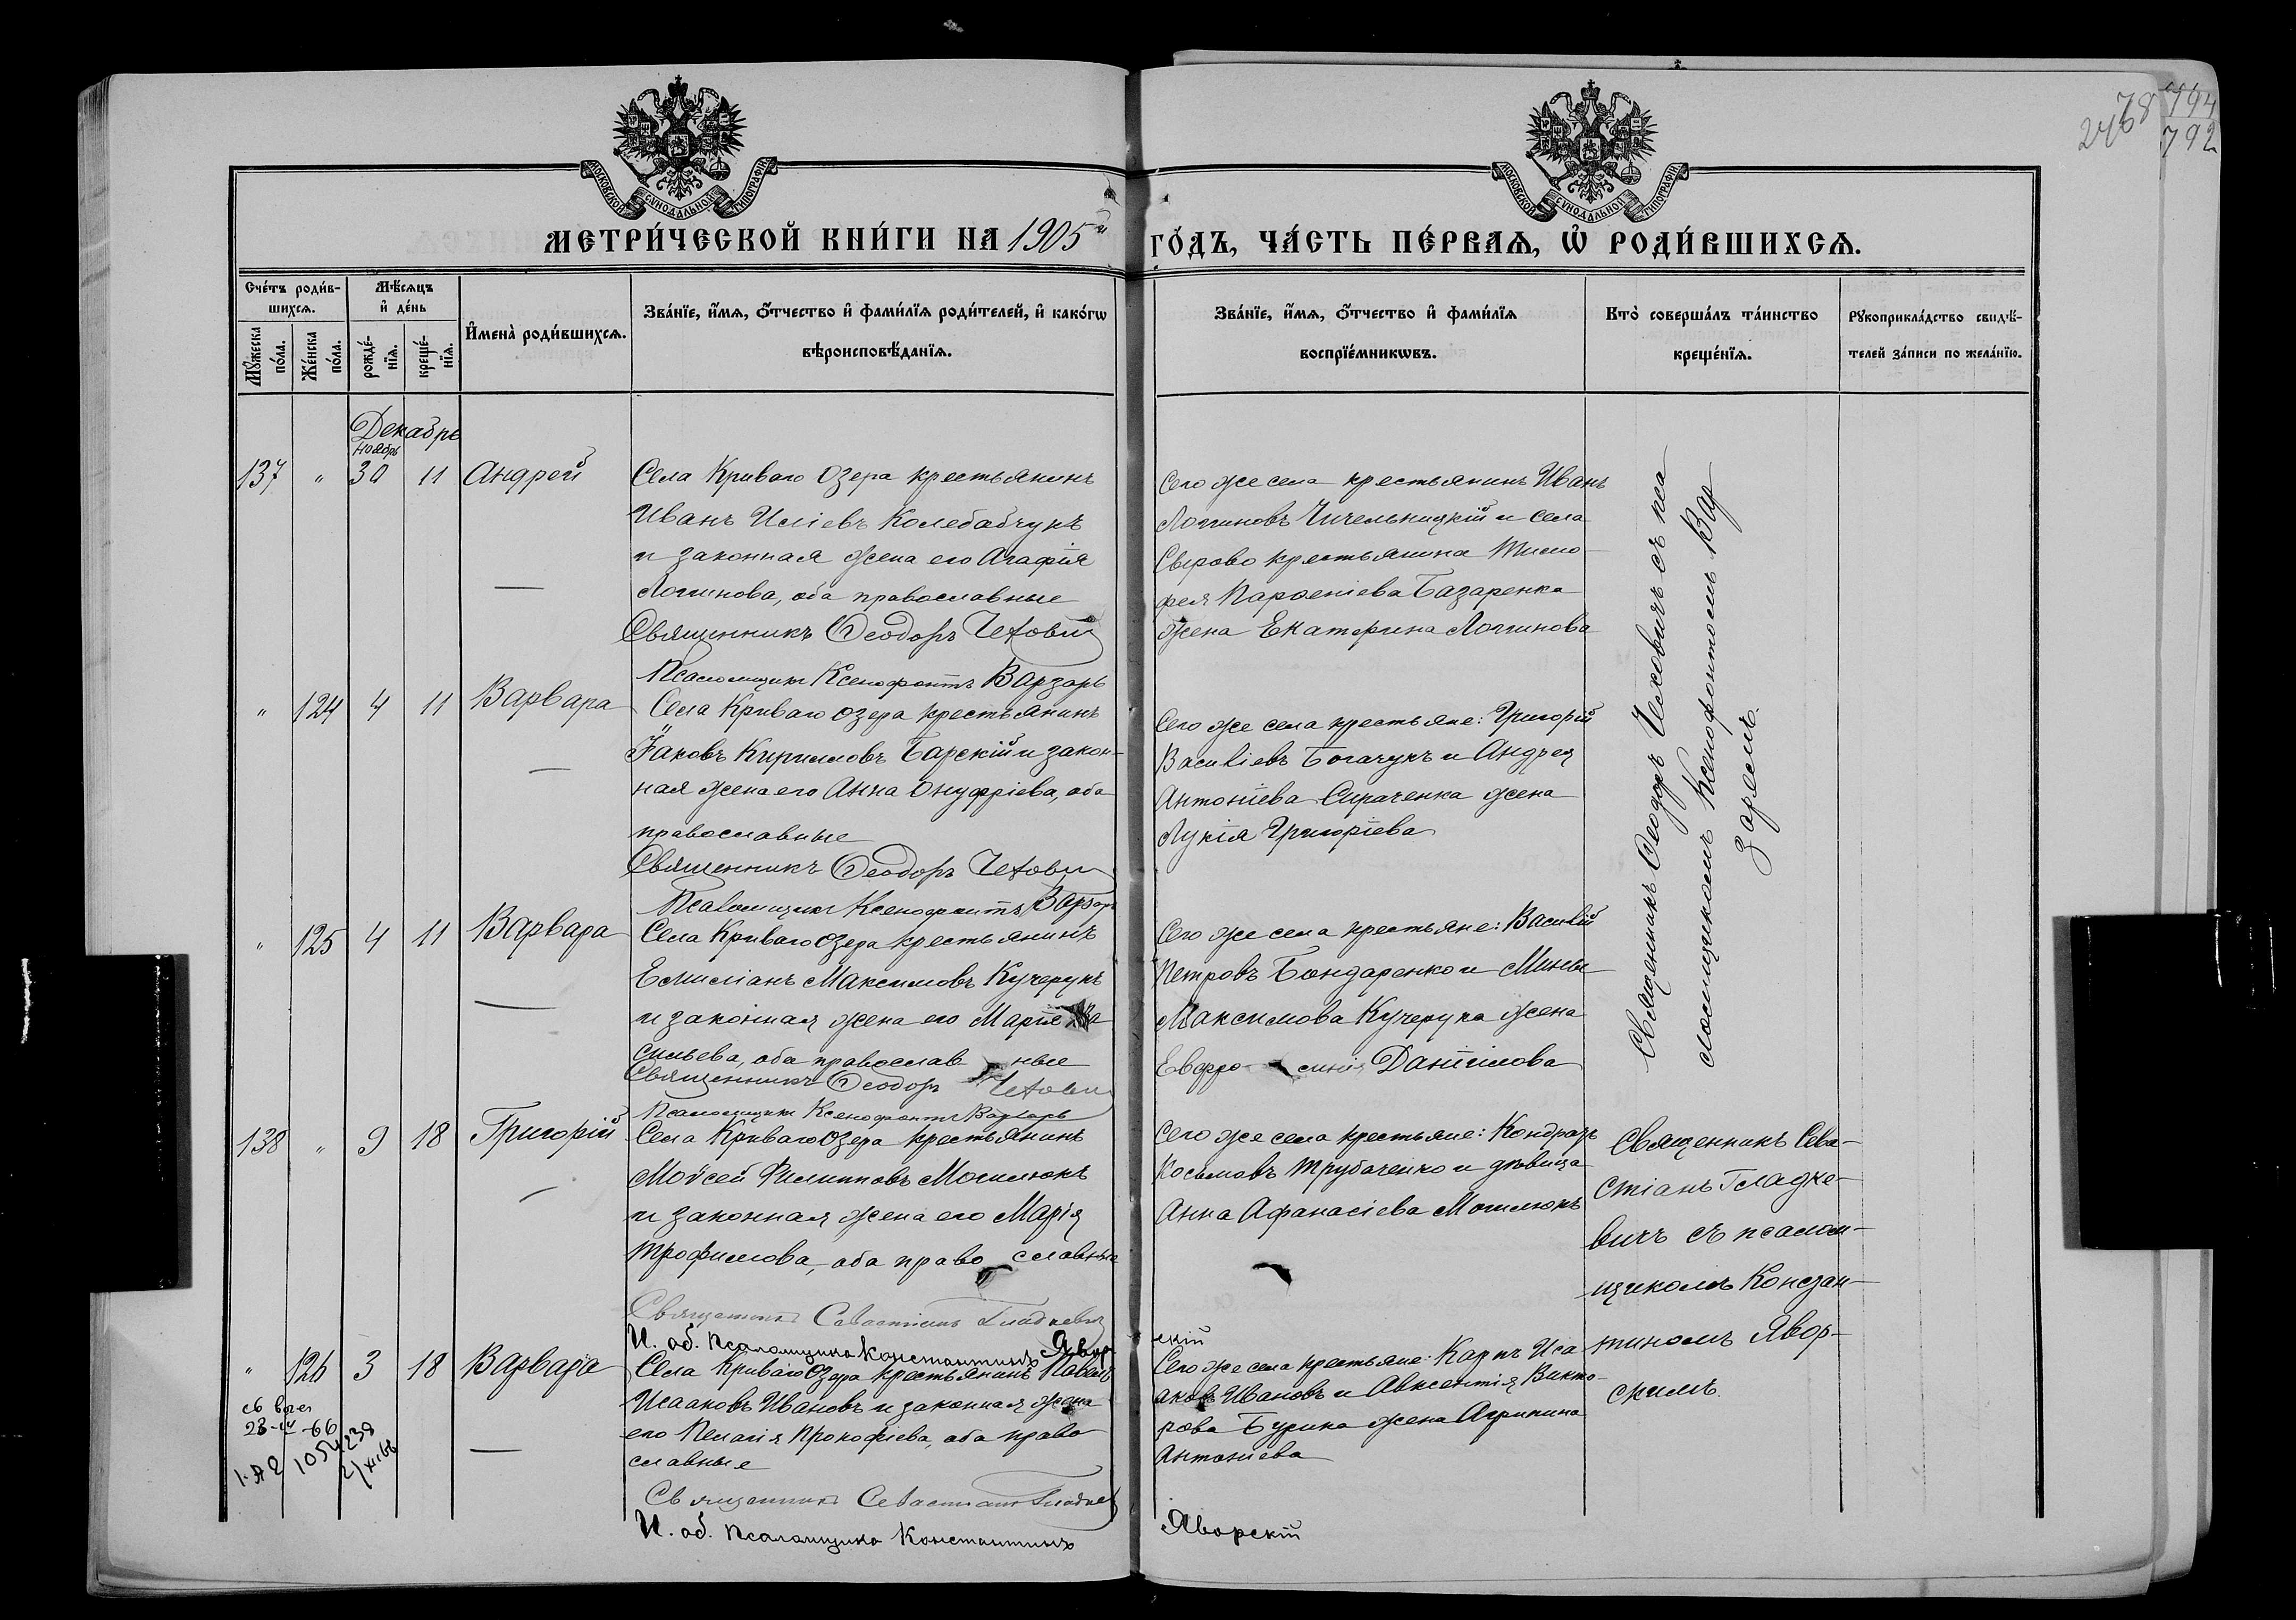 2468
794
792
МОСКОВСКОЙ СѴНОДАЛЬНОЙ ТИПОГРАФІИ
МОСКОВСКОЙ СѴНОДАЛЬНОЙ ТИПОГРАФІИ
МЕТРИ́ЧЕСКОЙ КНИ́ГИ НА 1905й ГО́ДЪ, ЧА́СТЬ ПЕ́РВАѦ, Ѡ҆ РОДИ́ВШИХСѦ.
Сче́тъ роди́в-
шихсѧ.
Мꙋ́жеска по́ла.
Же́нска по́ла.
Мѣ́сѧцъ
и҆ де́нь
рожде́-нїѧ.
креще́-нїѧ.
И҆мена̀ роди́вшихсѧ.
Зва́нїе, и҆́мѧ, ѻ҆́тчество и҆ фами́лїѧ роди́телей, и҆ како́гѡ
вѣроисповѣ́данїѧ.
Зва́нїе, и҆́мѧ, ѻ҆́тчество и҆ фами́лїѧ
воспрїе́мникѡвъ.
Кто̀ соверша́лъ та́инство
креще́нїѧ.
Рꙋкоприкла́дство свидѣ́-
телей за́писи по жела́нїю.
Декабрь
Ноябрь
137 " 30 11 Андрей
Села Криваго Озера крестьянинъ
Иванъ Иліевъ Колебабчукъ
и законная жена его Агафія
Логинова, оба православные
Священникъ Ѳеодоръ Чехович
Псаломщикъ Ксенофонтъ Варзарь
Сего же села крестьянинъ Иванъ
Логиновъ Чичельницкій и села
Сырово крестьянина Тимо-
фея Парѳеніева Базаренка
жена Екатерина Логинова
" 124 4 11 Варвара
Села Криваго Озера крестьянинъ
Іаковъ Кирилловъ Барскій и закон-
ная жена его Анна Онуфріева, оба
православные
Священникъ Ѳеодоръ Чехович
Псаломщикъ Ксенофонтъ Варзарь
Сего же села крестьяне: Григорій
Василіевъ Богачукъ и Андрея
Антоніева Сираченка жена
Лукія Григоріева
" 125 4 11 Варвара
Села Криваго Озера крестьянинъ
Емиліанъ Максимовъ Кучерукъ
и законная жена его Марія Ва
сильева, оба православ- ные
Священникъ Ѳеодоръ Чехович
Псаломщикъ Ксенофонтъ Варзарь
Сего же села крестьяне: Василій
Петровъ Бондаренко и Мины
Максимова Кучерука жена
Евфро- синія Даніилова
Священникъ Ѳеодоръ Чеховичъ съ пса
ломщикомъ Ксенофонтомъ Вар
заремъ.
138 " 9 18 Григорій
Села Криваго Озера крестьянинъ
Мойсей Филипповъ Могилюкъ
и законная жена его Марія
Трофимова, оба право славные
Священникъ Севастіанъ Гладкевич
И. об. псаломщика Константинъ Явор
скій
Сего же села крестьяне: Кондратъ
Косьмовъ Трубаченко и дѣвица
Анна Афанасіева Могилюкъ
Священникъ Сева-
стіанъ Гладке-
вичъ съ псалом-
щикомъ Констан-
тиномъ Явор-
скимъ.
" 126 3 18 Варвара
Села Криваго Озера крестьянинъ Павелъ
Исааковъ Ивановъ и законная жена
его Пелагія Прокофіева, оба право
славные
Священникъ Севастіанъ Гладкев
И. об. псаломщика Константинъ
Яворскій
Сего же села крестьяне: Карпъ Иса
аковъ Ивановъ и Авксентія Викто-
рова Бурика жена Агрипина
Антоніева
1054238